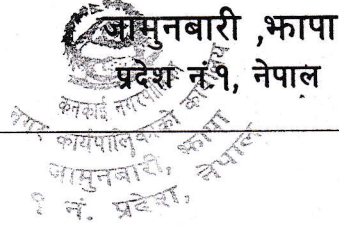 जामुनबारी ,झापा
प्रदेश नं.१, नेपाल
कनकाई नगरपालिका
नगर कार्यपालिकाको कार्यालय
जामुनबारी, झापा
१ नं. प्रदेश, नेपाल